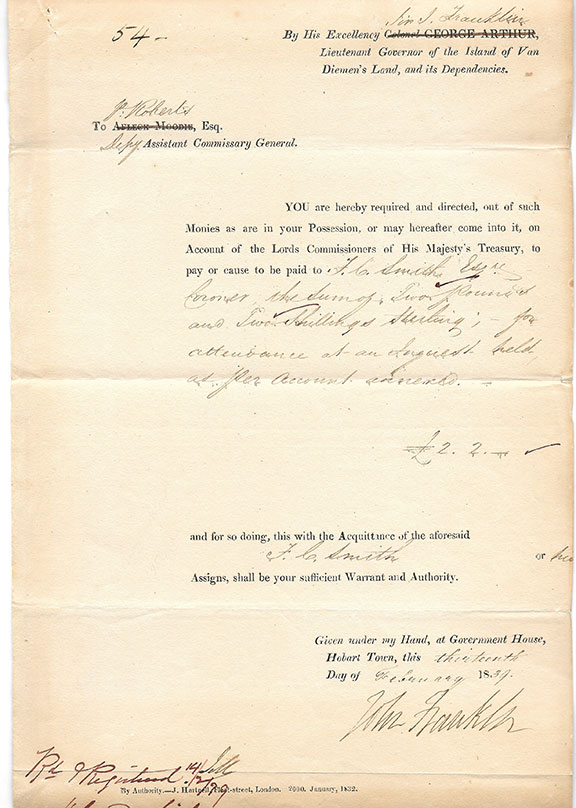 54 -
Sir J. Franklin
By His Excellency Colonel GEORGE ARTHUR,
Lieutenant Governor of the Island of Van
Diemen's Land, and its Dependencies.
P. Roberts
To AFLECK MOODIE, Esq.
Depy Assistant Commissary General.
YOU are hereby required and directed, out of such
Monies as are in your Possession, or may hereafter come into it, on
Account of the Lords Commissioners of His Majesty's Treasury, to
pay or cause to be paid to F. C. Smith Esqre
Coroner, the sum of, Two Pounds
and Two Shillings Sterling; - for
attendance at an Inquest held
as per Account annexed. -
£2. 2. -
and for so doing, this with the Acquittance of the aforesaid
F. C. Smith or his
Assigns, shall be your sufficient Warrant and Authority.
Given under my Hand, at Government House,
Hobart Town, this thirteenth
Day of February 1839.
John Franklin
Rd & Registered 14/2/39
By Authority.—J. Hartnell, Fleet-street, London. 2000. January, 1832.